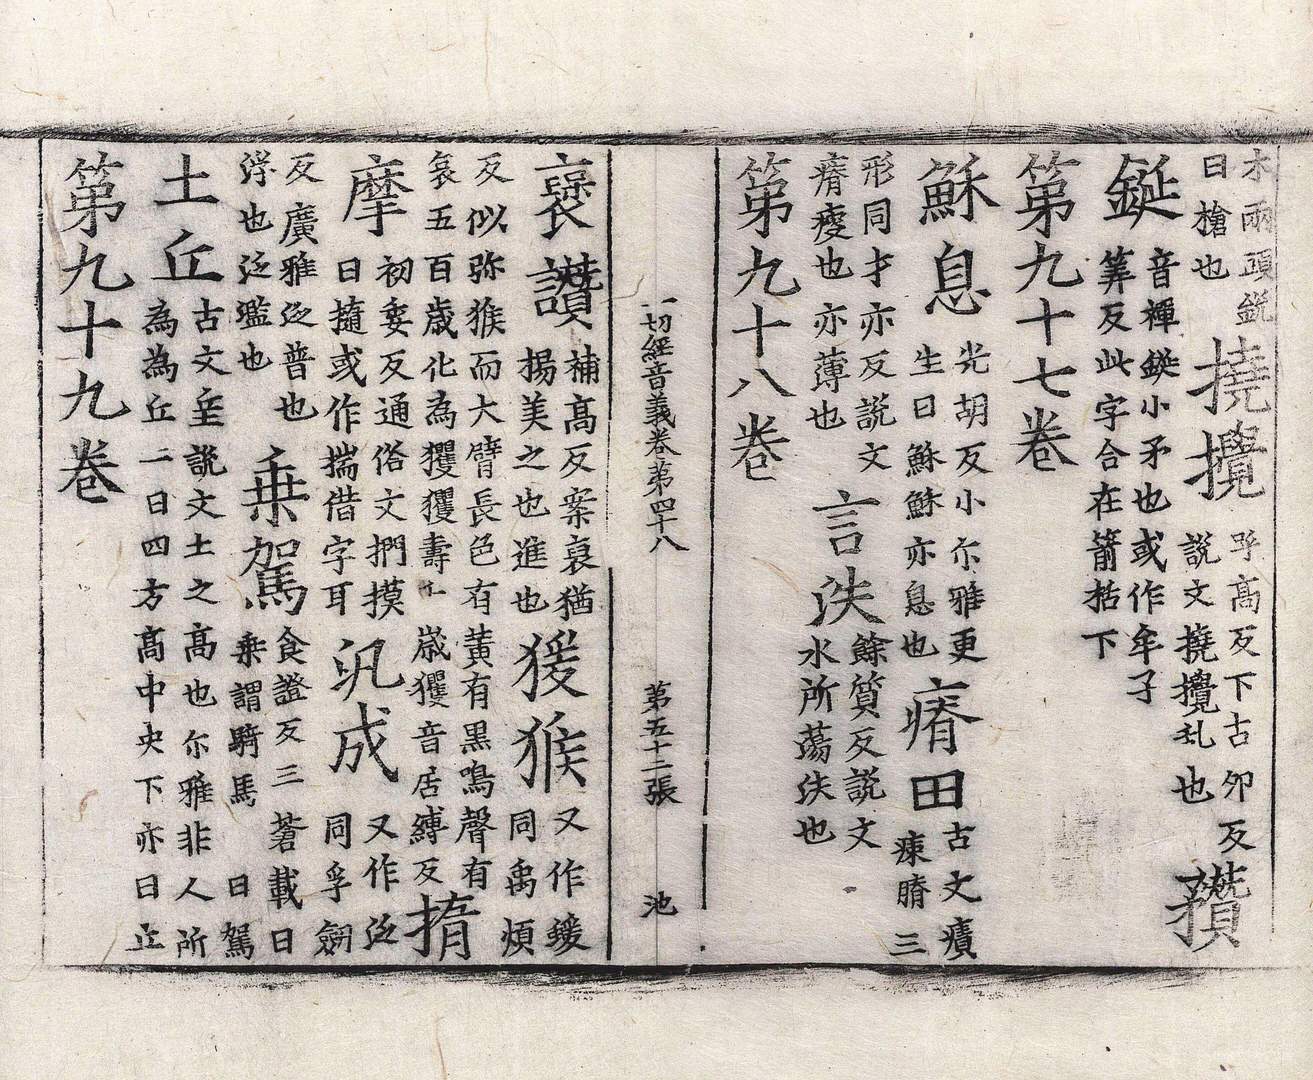 木兩頭銳
曰槍也
撓攪
乎高反下古卯反
説文撓攪乱也
攢
鋋
音禪鋋小矛也或作牟子
筭反此字合在箭栝下
第九十七卷
穌息
光胡反小尓雅更
生曰穌穌亦息也
瘠田
古文㿉
㾊膌三
形同才亦反説文
瘠瘦也亦薄也
言泆
餘質反説文
水所蕩泆也
第九十八卷
一切經音義卷第四十八 第五十二張 池
襃讃
補高反案襃猶
揚美之也進也
猨猴
又作蝯
同禹煩
反似弥猴而大臂長色有黃有黑鳴聲有
哀五百歲化為玃玃壽一歲玃音居縛反
揹
摩
初委反通俗文捫摸
曰㨨或作揣借字耳
汎成
又作泛
同孚劒
反廣雅泛普也
浮也泛濫也
乗駕
食證反三蒼載曰
乗謂騎馬曰駕
土丘
古文坵説文土之高也尓雅非人所
為為丘一曰四方高中央下亦曰丘
第九十九卷